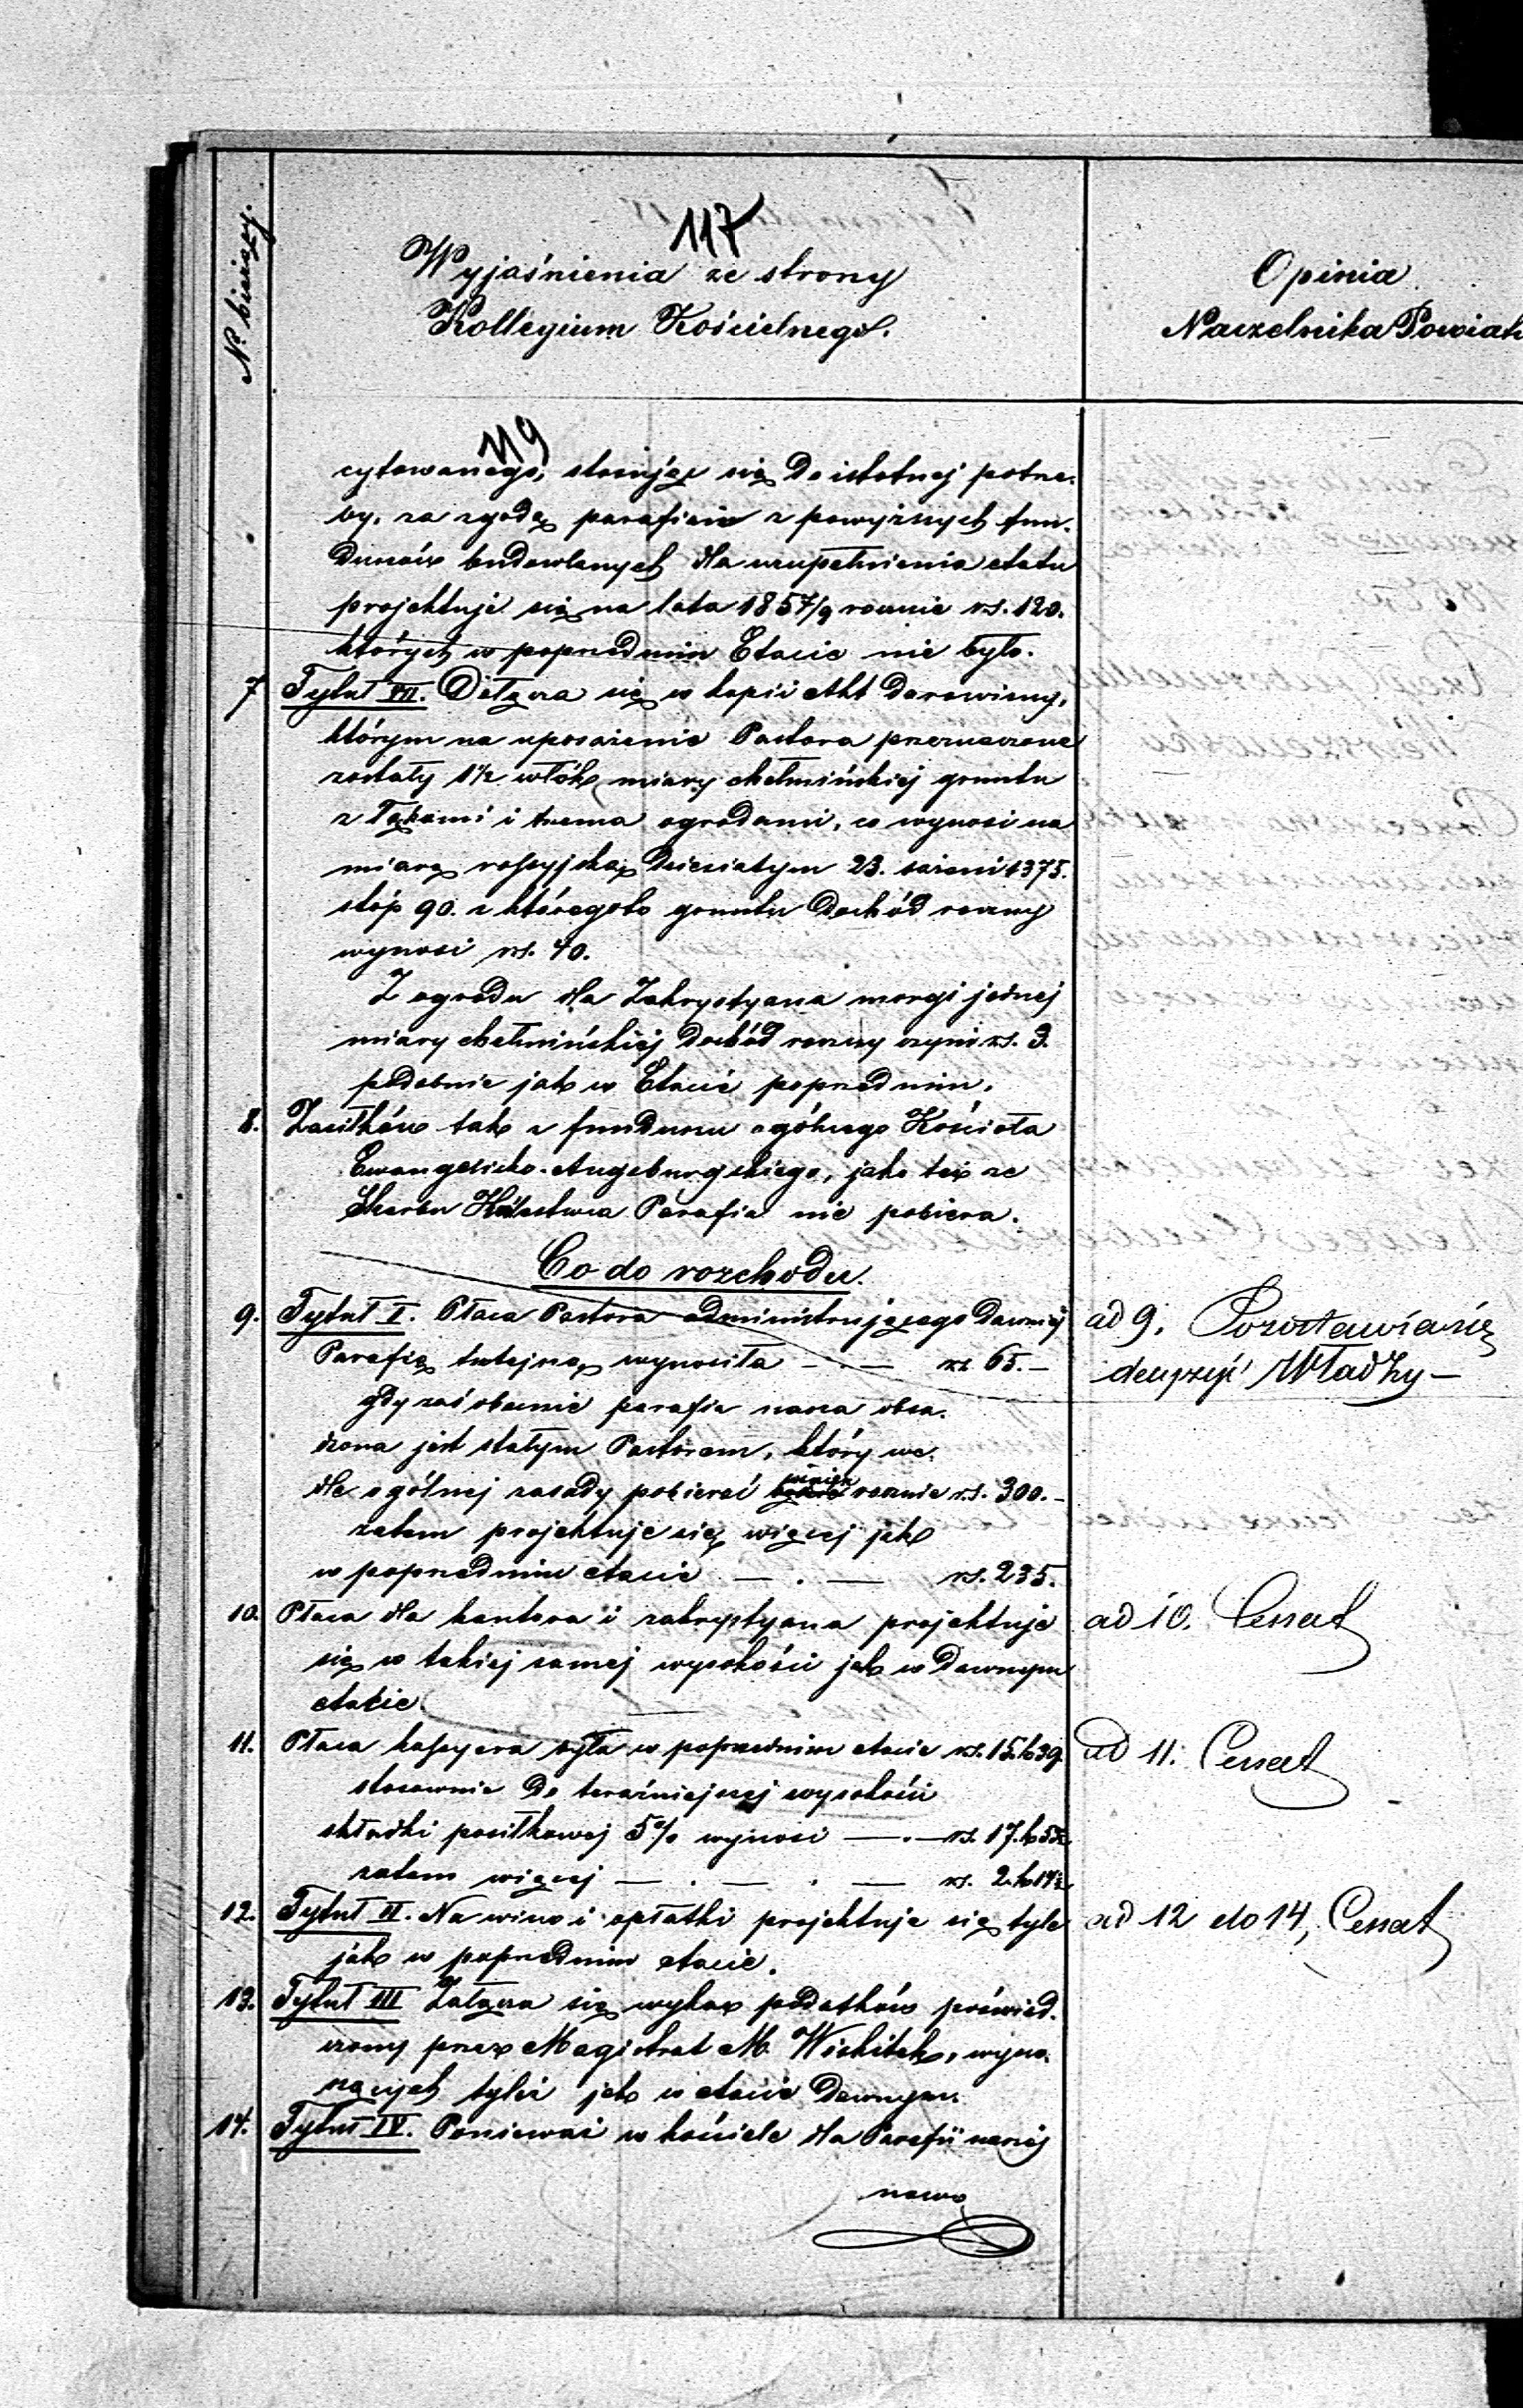 N. bieżący.
117
Wyjaśnienia ze strony
Kollegium Kościelnego.
Opinia
Naczelnika Powiatu
119
cytowanego, stosując się do istotnej potrze-
by, za zgodą parafian z powyższych fun-
duszów budowlanych dla uzupełnienia etatu
projektuje się na lata 1857/9 rocznie rs. 120.
których w poprzednim Etacie nie było.
7 Tytuł VII. Dołącza się w kopii Akt darowizny,
którym na uposażenie Pastora przeznaczone
zostały 1½ włók miary chełmińskiej gruntu
z łąkami i trzema ogrodami, co wynosi na
miarę rossyjską dziesiatyn 23. sażeni 1375.
stóp 90. z któregoto gruntu dochód roczny
wynosi rs. 40.
Z ogrodu dla Zakrystyana morgi jednej
miary chełmińskiej dochód roczny czyni rs. 3.
podobnie jak w Etacie poprzednim.
8. Zasiłków tak z funduszu ogólnego Kościoła
Ewangelicko-Augsburgskiego, jako też ze
Skarbu Królestwa Parafia nie pobiera.
Co do rozchodu.
9. Tytuł I. Płaca Pastora administrującego dawniej
Parafią tutejszą wynosiła — . — rs. 65. —
gdy zaś obecnie parafia nasza obsa-
dzona jest stałym Pastorem, który we-
dle ogólnej zasady pobierać winien rocznie rs. 300. —
zatem projektuje się więcej jak
w poprzednim etacie — . — rs. 235.
10. Płaca dla kantora i zakrystyana projektuje
się w takiej samej wysokości jak w dawnym
etacie.
11. Płaca kassyera była w poprzednim etacie rs. 15. k 39.
stosownie do teraźniejszej wysokości
składki posiłkowej 5% wynosi — . — rs. 17. k
zatem więcej — . — . — rs. 2. k
12. Tytuł II. Na wino i opłatki projektuje się tyle
jak w poprzednim etacie.
13. Tytuł III Załącza się wykaz podatków poświad-
czony przez Magistrat M. Wiskitek, wyno-
szących tyleż jak w etacie dawnym.
14. Tytuł IV. Ponieważ w kościele dla Parafii naszej
nowo
ad 9. Pozostawia się
decyzyi Władzy —
ad 10. Cessat
ad 11. Cessat
ad 12 do 14, Cessat